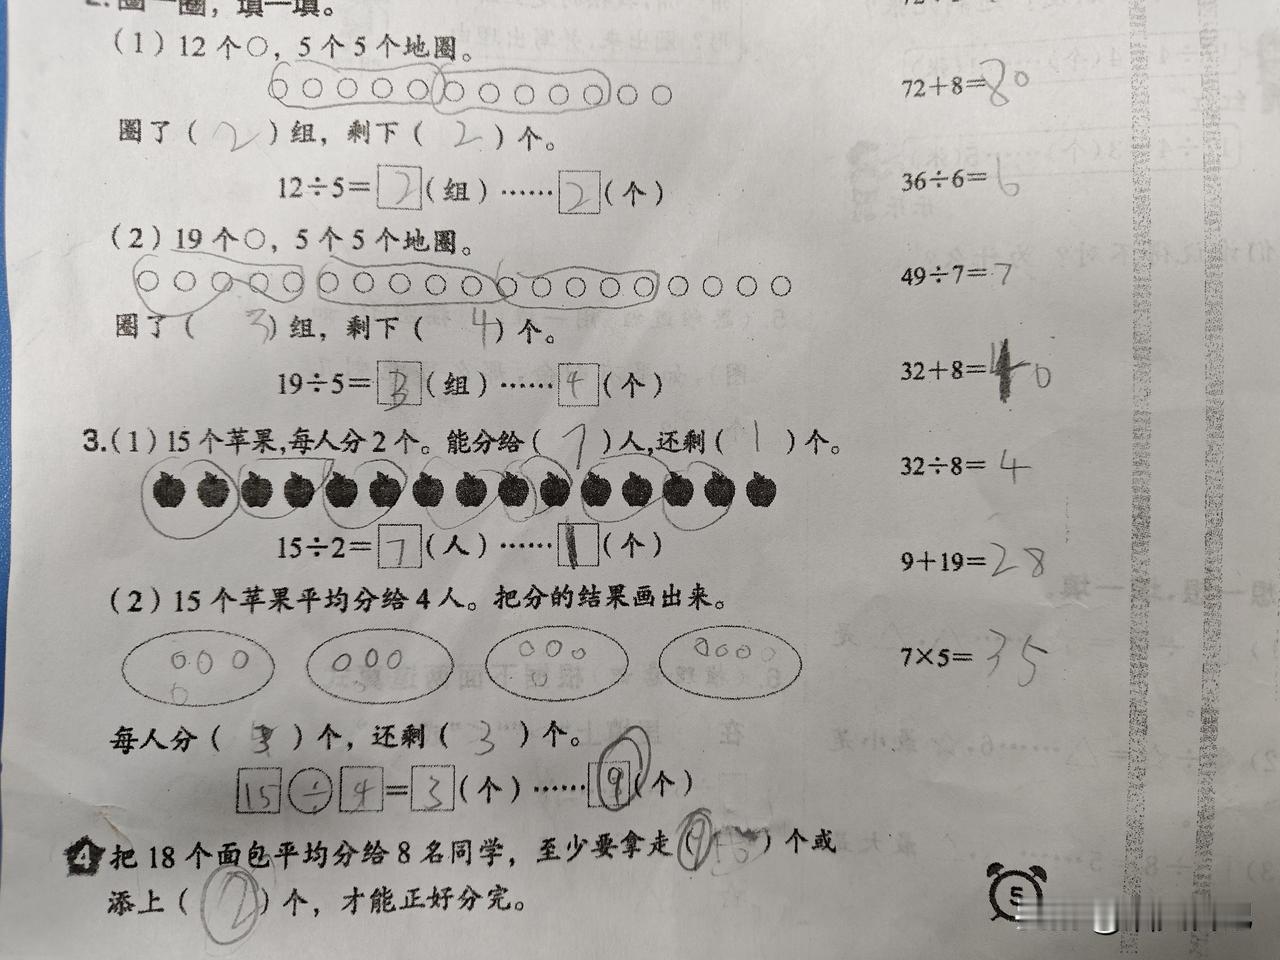 2.圈一圈，填一填。
(1) 12个○，5个5个地圈。
圈了（ 2 ）组，剩下（ 2 ）个。
12÷5=2(组)……2(个)
(2) 19个○，5个5个地圈。
圈了（ 3 ）组，剩下（ 4 ）个。
19÷5=3(组)……4(个)
3.(1) 15个苹果,每人分2个。能分给（ 7 ）人,还剩（ 1 ）个。
15÷2=7(人)……1(个)
(2) 15个苹果平均分给4人。把分的结果画出来。
每人分（ 3 ）个，还剩（ 3 ）个。
15÷4=3(个)……9(个)
4 把18个面包平均分给8名同学，至少要拿走（ ）个或
添上（ 2 ）个，才能正好分完。
72+8=80
36÷6=6
49÷7=7
32+8=40
32÷8=4
9+19=28
7×5=35
5